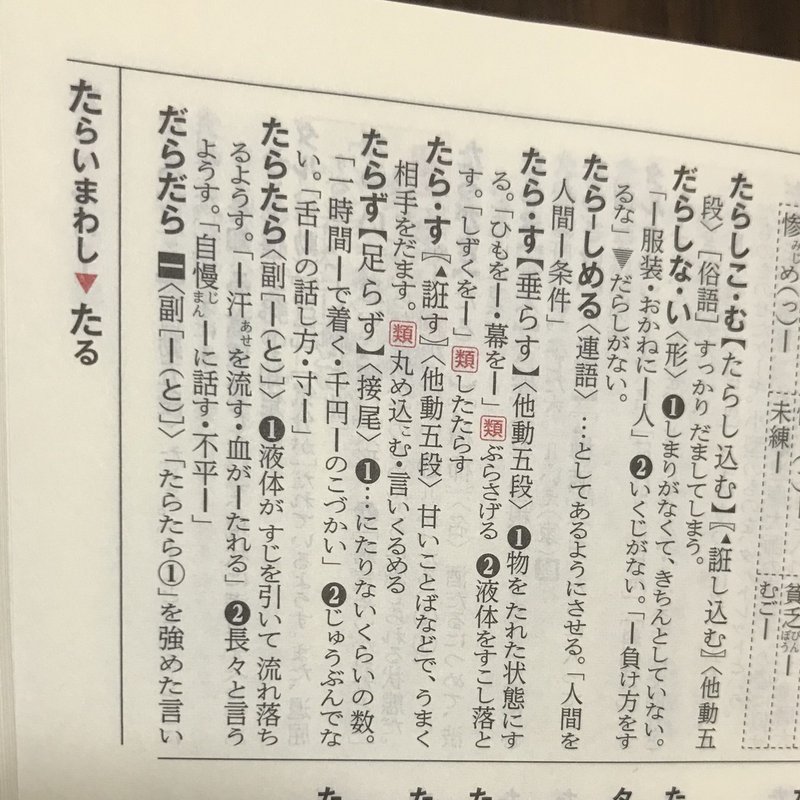 惨みじめ(っ)ー
未練ー
貧乏びんぼうー
むごー
たらしこ・む【たらし込む】【▲誑し込む】〈他動五
段〉［俗語］すっかりだましてしまう。
だらしな・い〈形〉❶しまりがなくて、きちんとしていない。
「ー服装・おかねにー人」❷いくじがない。「ー負け方をす
るな」▼だらしがない。
たらーしめる〈連語〉…としてあるようにさせる。「人間を
人間ー条件」
たら・す【垂らす】〈他動五段〉❶物をたれた状態にす
る。「ひもをー・幕をー」類ぶらさげる❷液体をすこし落と
す。「しずくをー」類したたらす
たら・す【▲誑す】〈他動五段〉甘いことばなどで、うまく
相手をだます。類丸め込こむ・言いくるめる
たらず【足らず】〈接尾〉❶…にたりないくらいの数。
「一時間ーで着く・千円ーのこづかい」❷じゅうぶんでな
い。「舌ーの話し方・寸ー」
たらたら〈副［ー(と)］〉❶液体がすじを引いて流れ落ち
るようす。「ー汗あせを流す・血がーたれる」❷長々と言う
ようす。「自慢じまんーに話す・不平ー」
だらだら 一〈副［ー(と)］〉「たらたら①」を強めた言い
たらいまわし▼たる